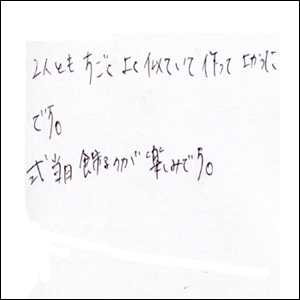 2人ともすごくよく似ていて作ってよかった
です。
式当日飾るのが楽しみです。